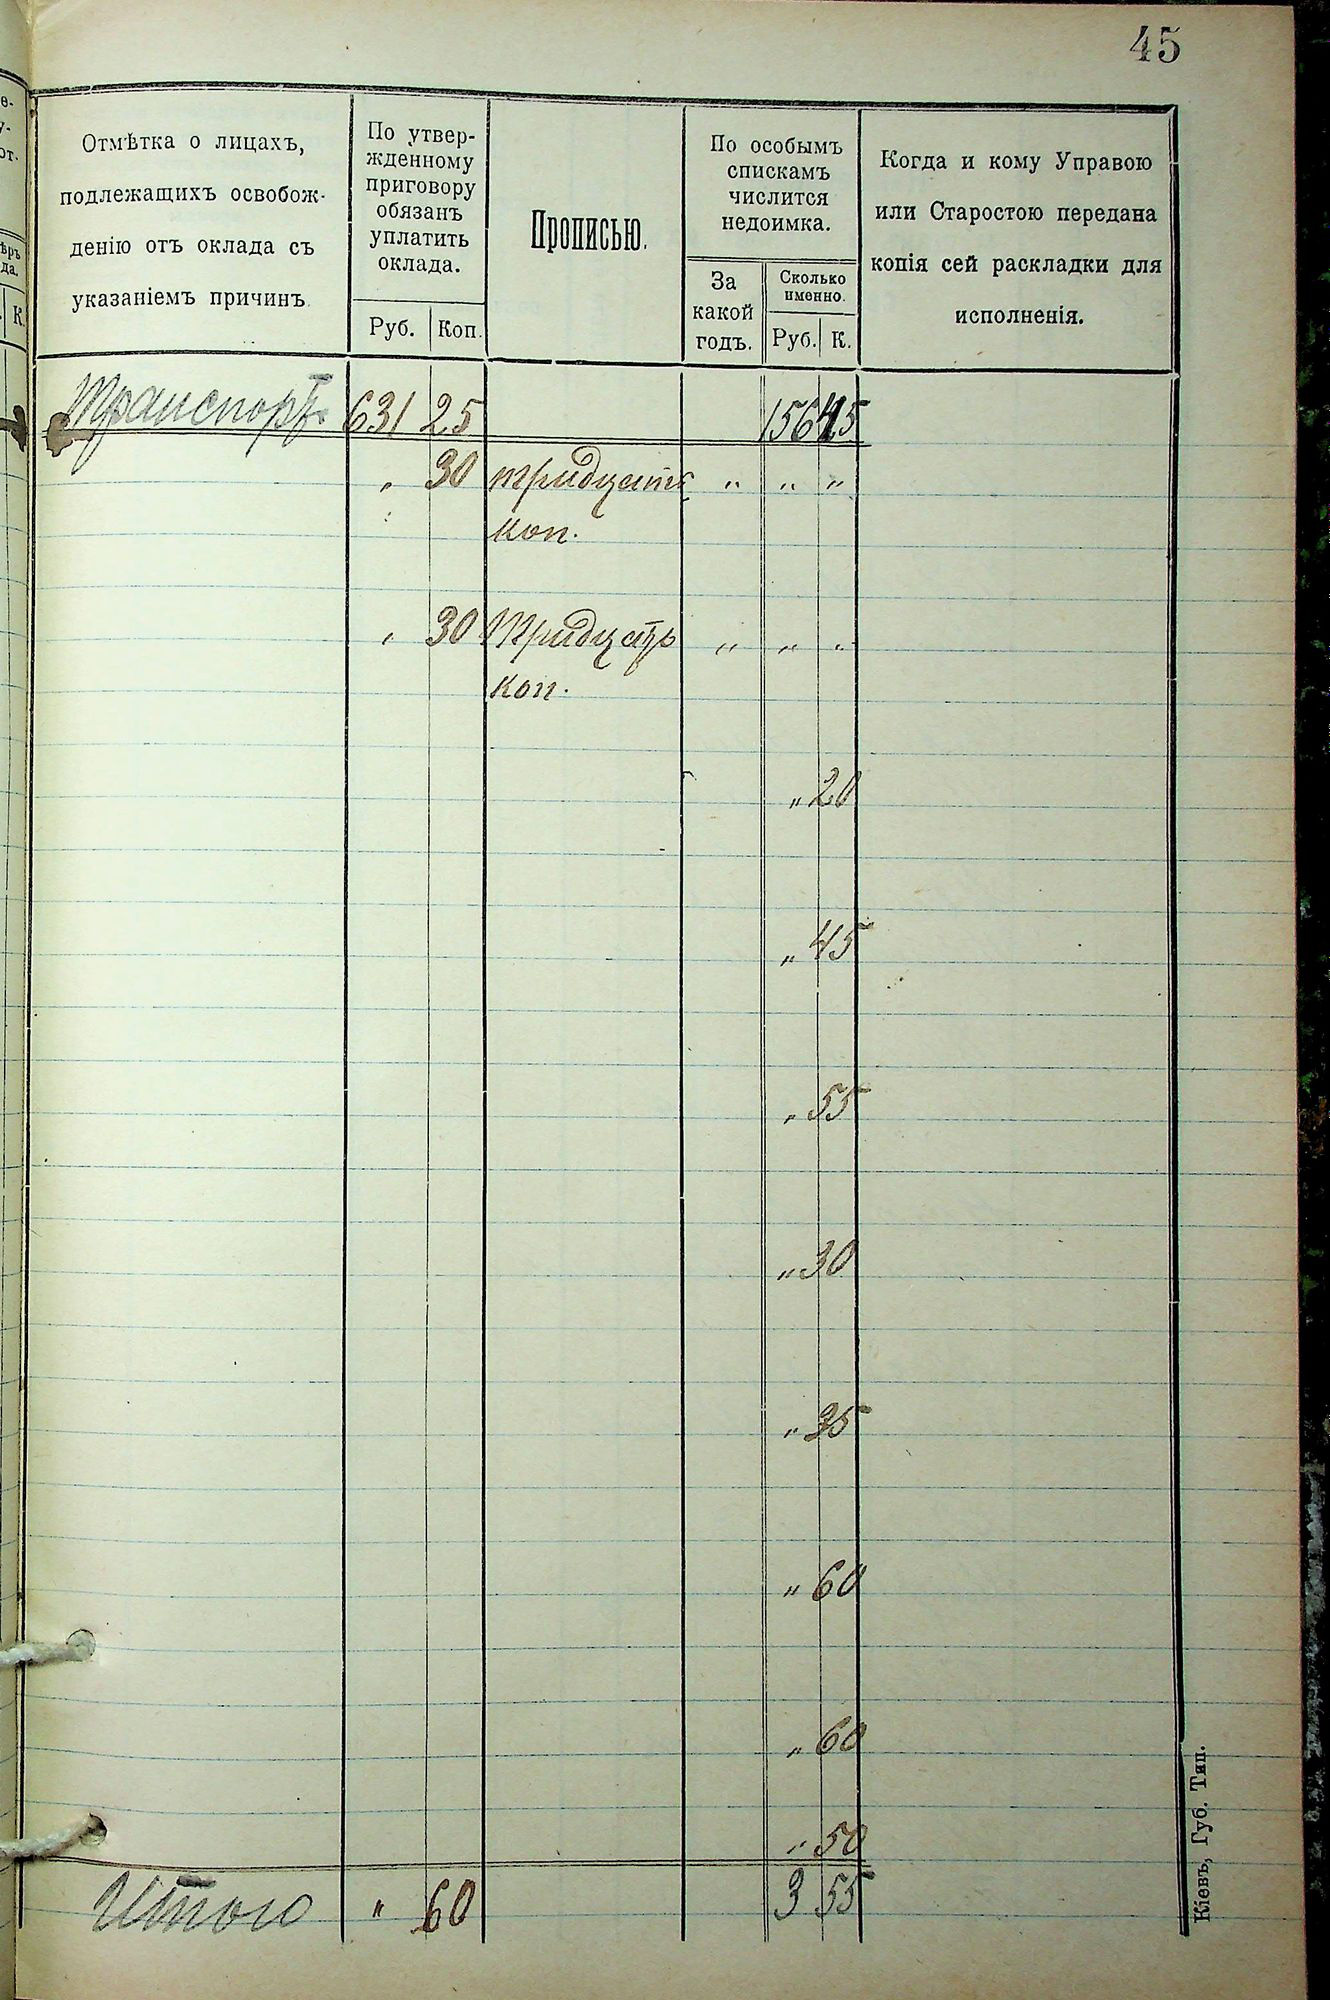 45
Отмѣтка о лицахъ,
подлежащихъ освобож-
денію отъ оклада съ
указаніемъ причинъ.
По утвер-
жденному
приговору
обязанъ
уплатить
оклада.
Руб. Коп.
Прописью.
По особымъ
спискамъ
числится
недоимка.
За
какой
годъ.
Сколько
именно.
Руб. К.
Когда и кому Управою
или Старостою передана
копія сей раскладки для
исполненія.
Транспортъ 631 25 156 45
" 30 тридцать " " "
коп.
" 30 Тридцать " " "
коп.
" 20
" 45
" 55
" 30
" 35
" 60
" 60
" 50
Итого " 60 3 55
Кіевъ, Губ. Тип.